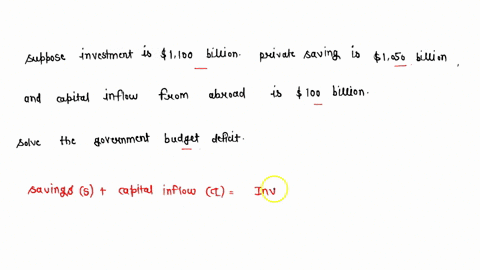 suppose investment is $1,100 billion. private saving is $1,050 billion,
and capital inflow from abroad is $100 billion.
solve the government budget deficit.
savings (s) + capital inflow (CI) = Inv